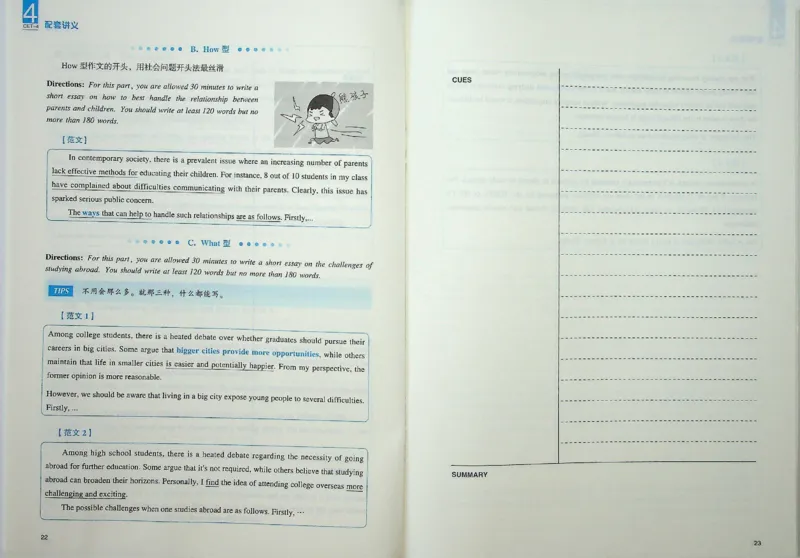 4
CET-4
配套讲义
B. How 型
How 型作文的开头，用社会问题开头法最丝滑
Directions: For this part, you are allowed 30 minutes to write a
short essay on how to best handle the relationship between
parents and children. You should write at least 120 words but no
more than 180 words.
熊孩子
【范文】
In contemporary society, there is a prevalent issue where an increasing number of parents
lack effective methods for educating their children. For instance, 8 out of 10 students in my class
have complained about difficulties communicating with their parents. Clearly, this issue has
sparked serious public concern.
The ways that can help to handle such relationships are as follows. Firstly,...
C. What 型
Directions: For this part, you are allowed 30 minutes to write a short essay on the challenges of
studying abroad. You should write at least 120 words but no more than 180 words.
TIPS 不用会那么多。就那三种，什么都能写。
【范文1】
Among college students, there is a heated debate over whether graduates should pursue their
careers in big cities. Some argue that bigger cities provide more opportunities, while others
maintain that life in smaller cities is easier and potentially happier. From my perspective, the
former opinion is more reasonable.
However, we should be aware that living in a big city expose young people to several difficulties.
Firstly, ...
【范文2】
Among high school students, there is a heated debate regarding the necessity of going
abroad for further education. Some argue that it's not required, while others believe that studying
abroad can broaden their horizons. Personally, I find the idea of attending college overseas more
challenging and exciting.
The possible challenges when one studies abroad are as follows. Firstly, ···
22
CUES
SUMMARY
23